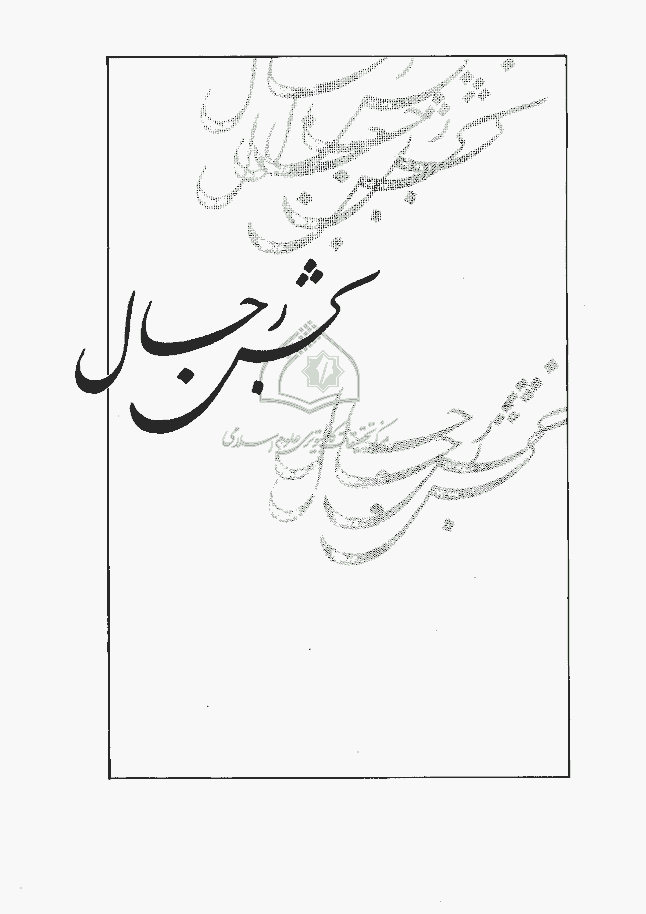 بخش رجال
مرکز تحقیقات کامپیوتری علوم اسلامی